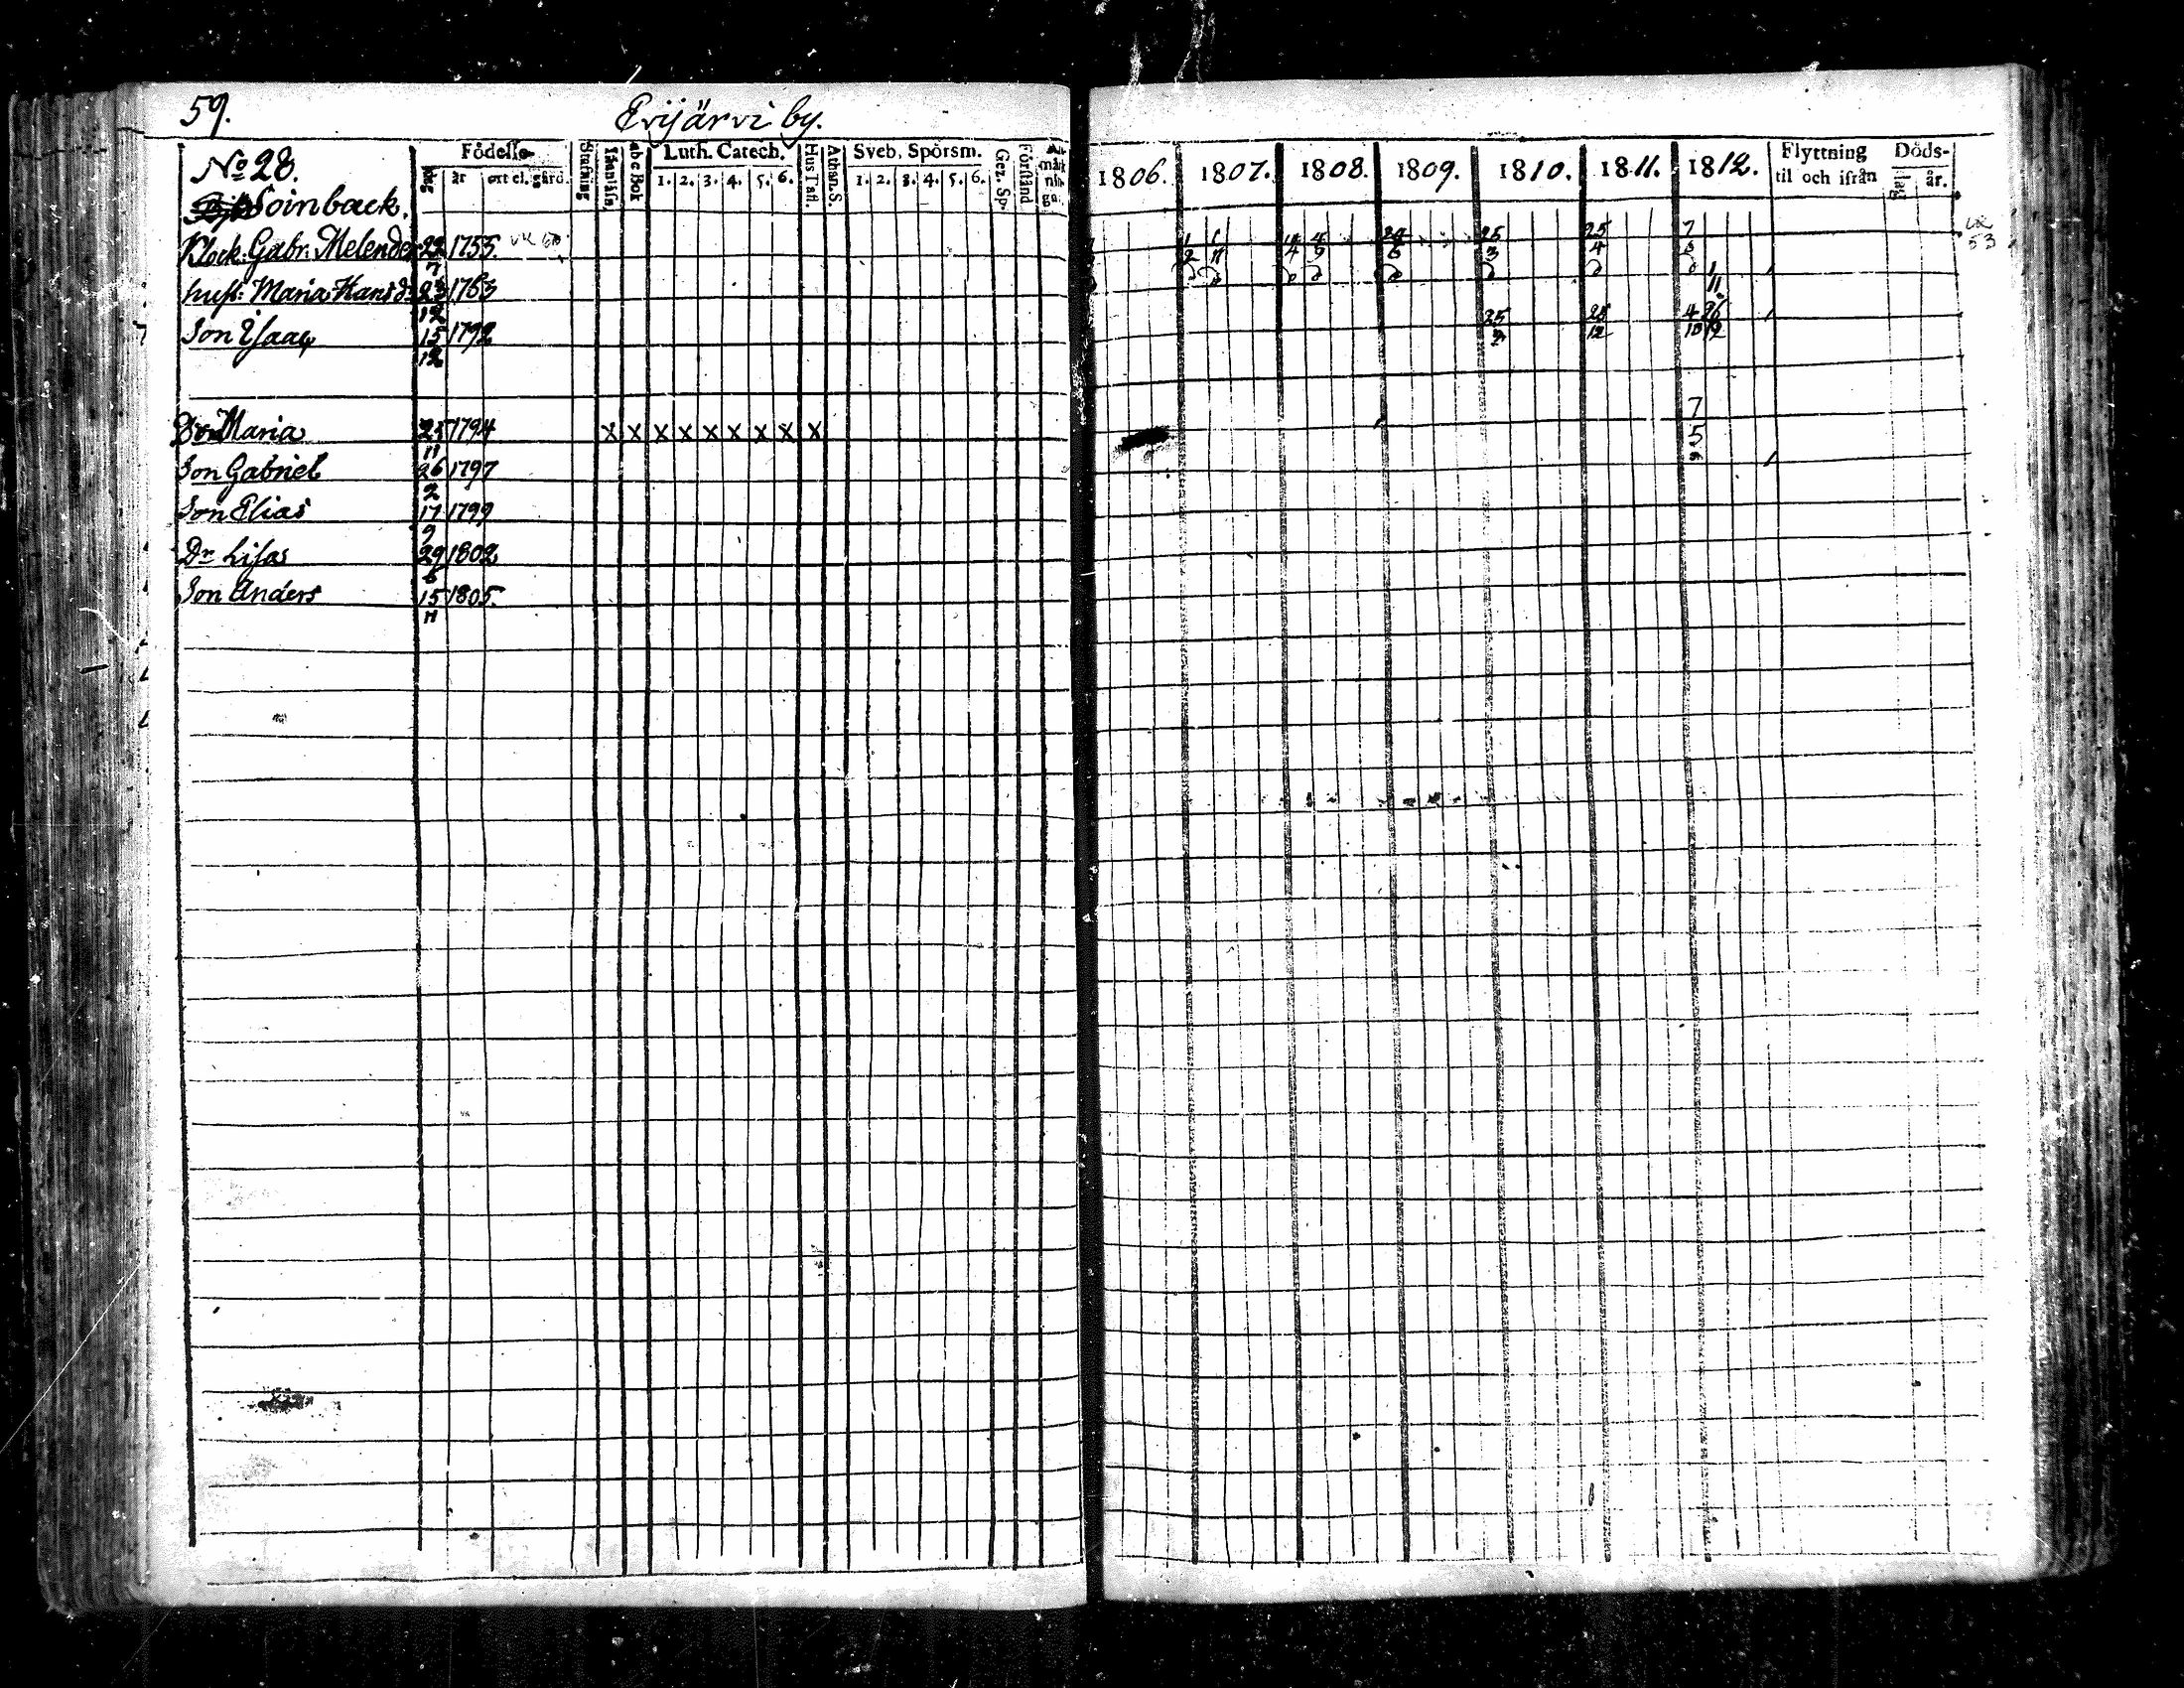 59. Evijärvi by.
No 28. Födelse Stafning Abc Bok Luth. Catech. Hus Tafl. Athan. S. Sveb. Spörsm. Gez. Sp. Förstånd 1806. 1807. 1808. 1809. 1810. 1811. 1812. Flyttning Döds-
dag år ort el. gård. 1. 2. 3. 4. 5. 6. 1. 2. 3. 4. 5. 6. til och ifrån dag år.
Soinback.
Klock. Gabr. Melender 22 1755. 1 1 4 4 24 25 25 7
7 2 11 4 9 6 3 4 5
hust: Maria Hansdr 23 1763 11
12 25 28 4 26
Son Isaac 15 1792 12 10 12
12
7
Dr Maria 25 1794 x x x x x x x x x 5
11
Son Gabriel 26 1797
2
Son Elias 17 1799
9
Dr Lisa 29 1802
6
Son Anders 15 1805.
11